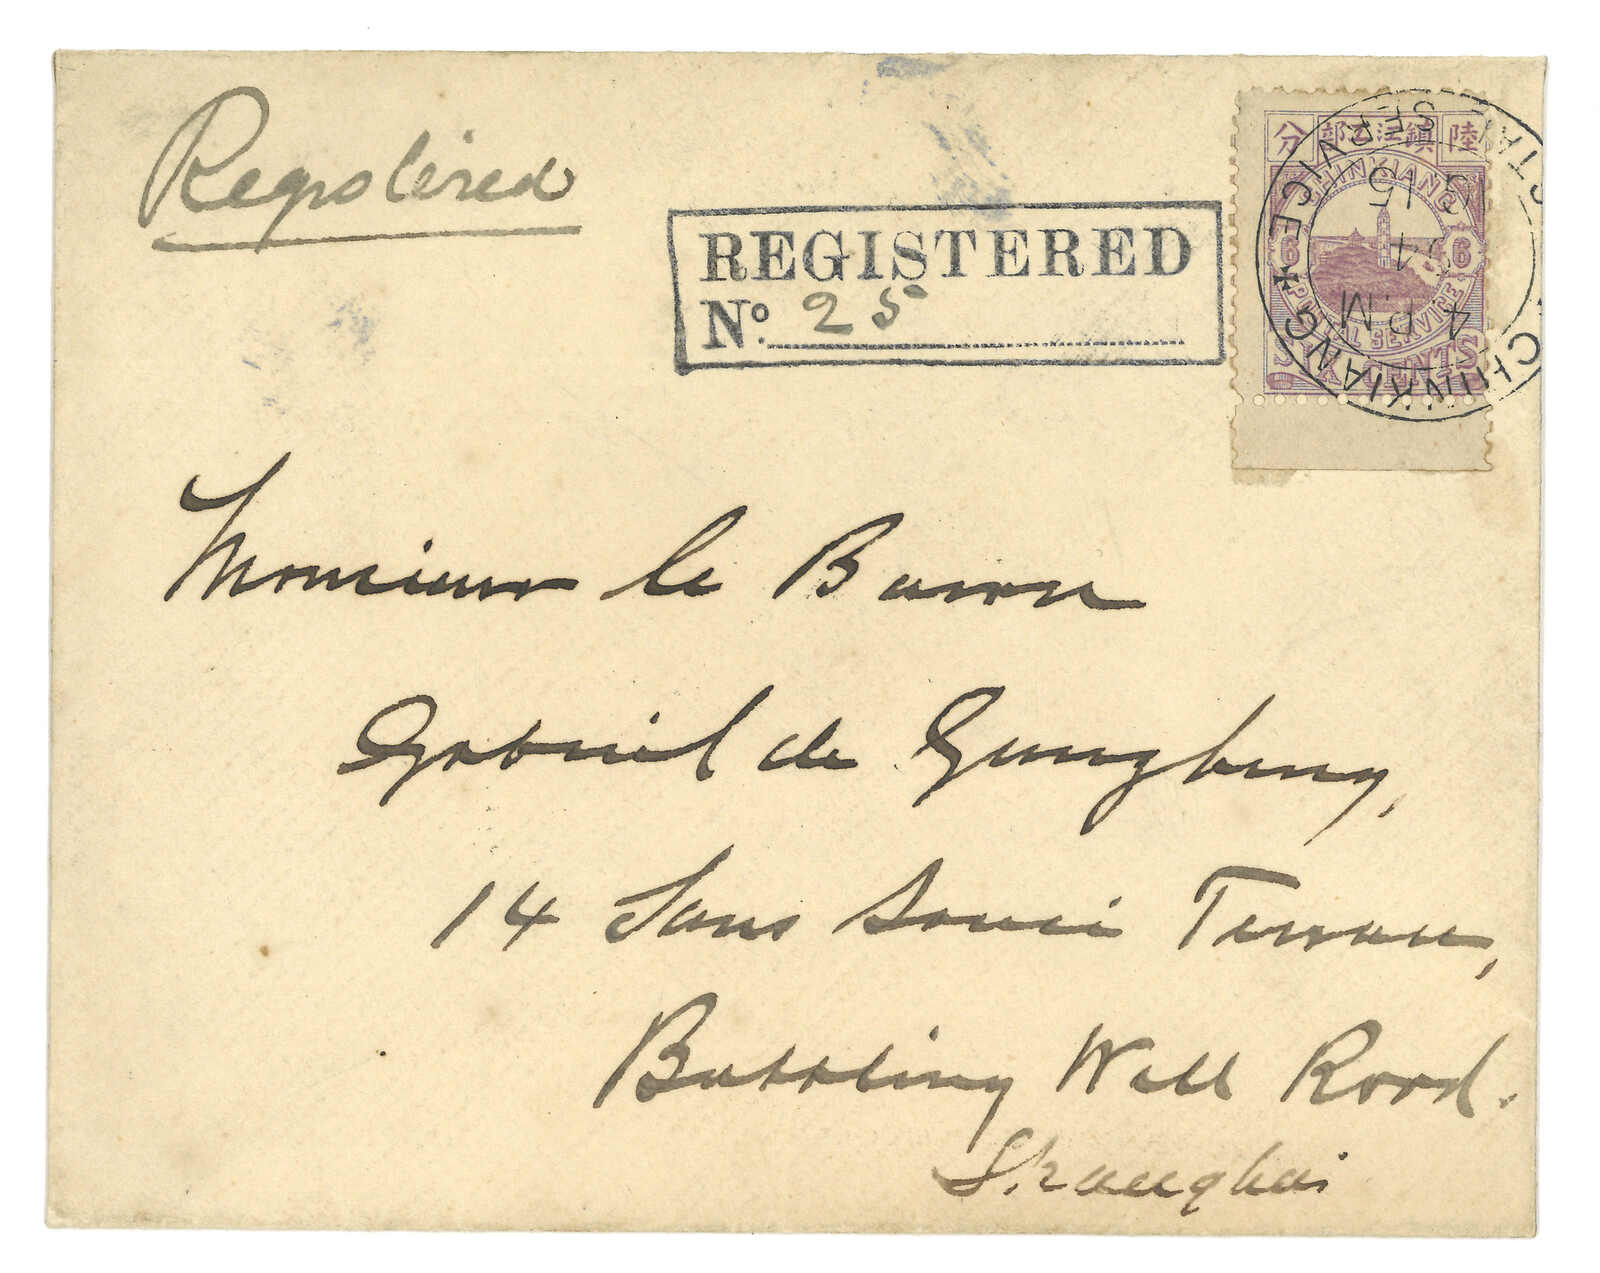 Registered
REGISTERED
No. 25
分 部工江鎮 陸
CHINKIANG
6 6
POSTAL SERVICE
SIX CENTS
CHINKIANG
SERVICE
4 P.M
15
Monsieur le Baron
Gabriel de Gunzburg,
14 Sans Souci Terrace,
Bubbling Well Road.
Shanghai